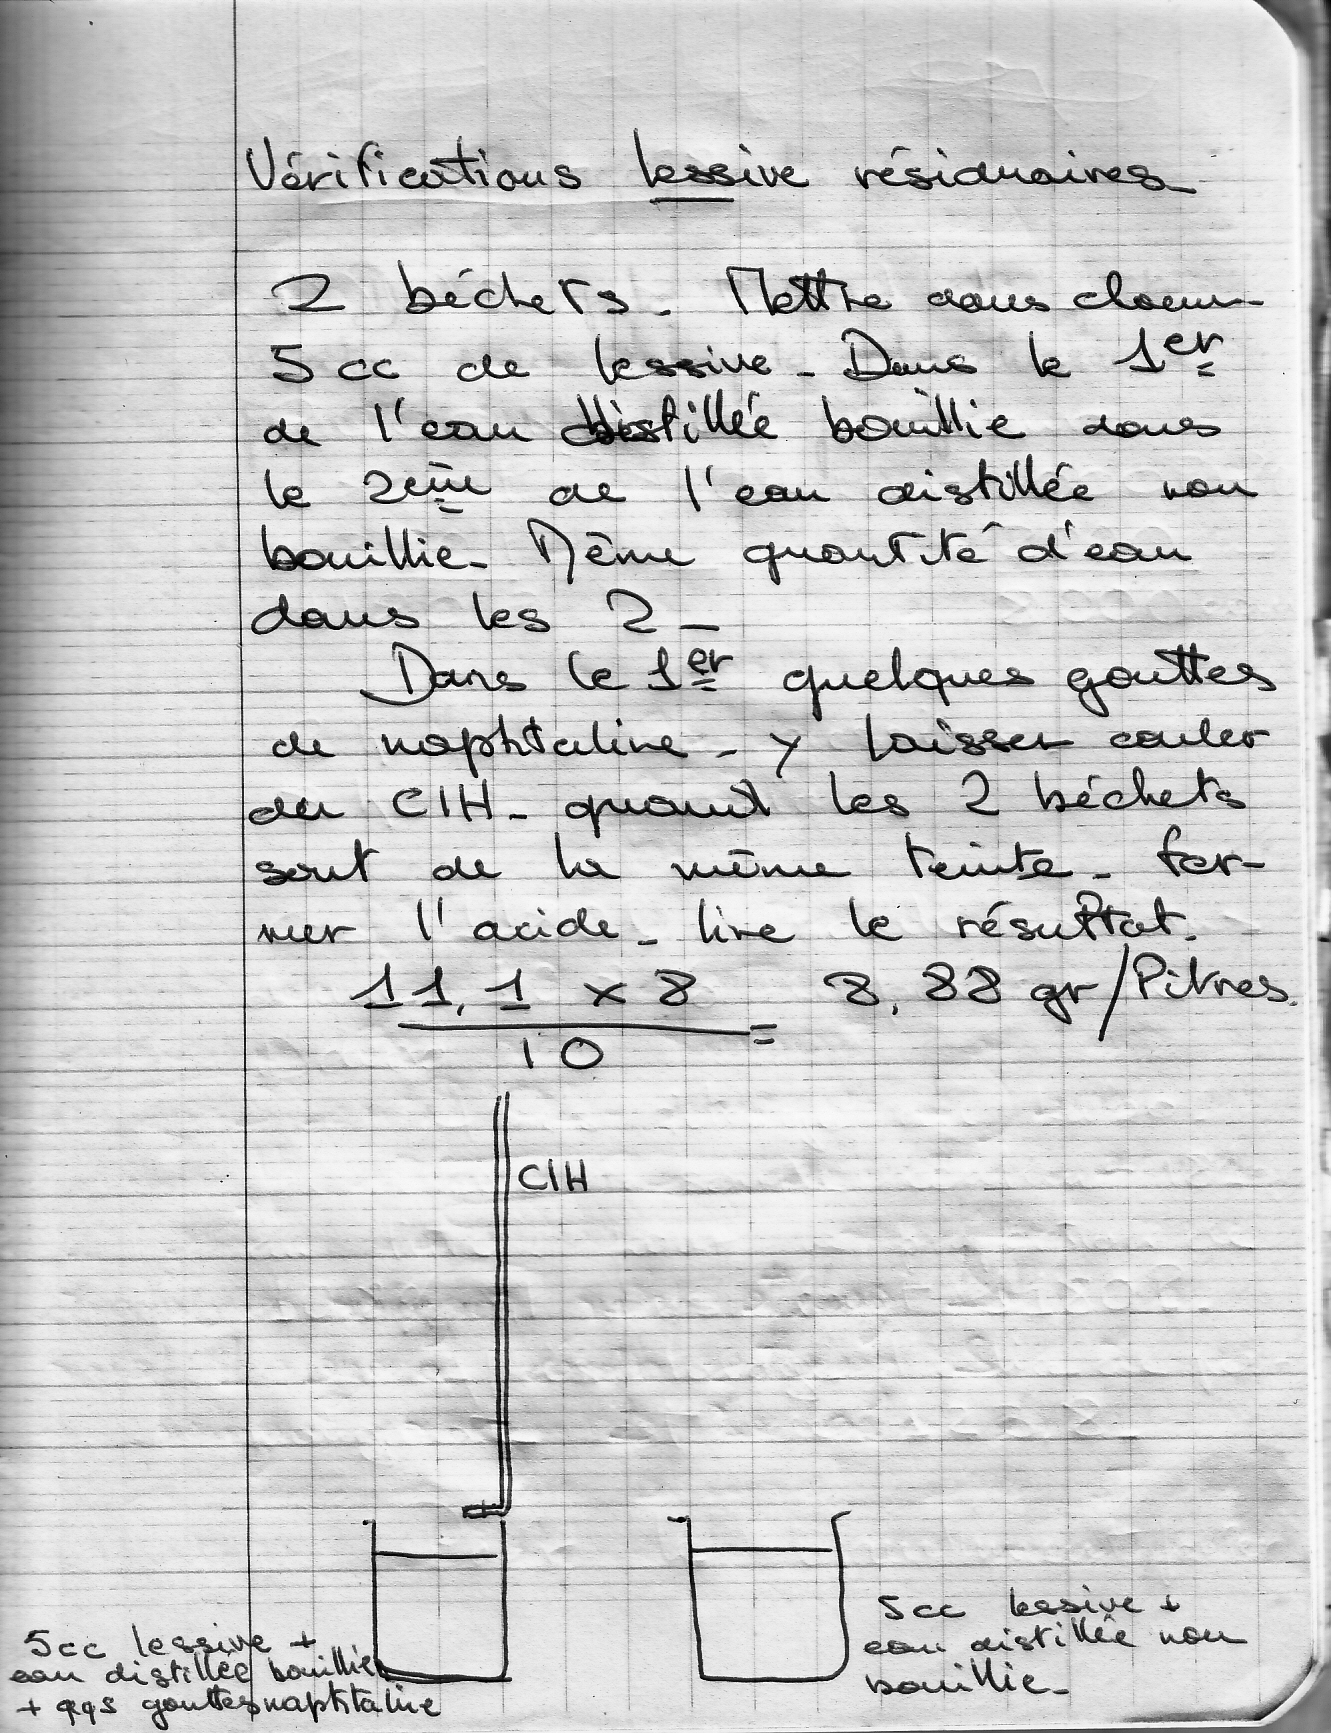 Vérifications lessive résiduaires
2 béchers. Mettre dans chacun
5 cc de lessive. Dans le 1er
de l'eau distillée bouillie dans
le 2ème de l'eau distillée non
bouillie. Même quantité d'eau
dans les 2 -
Dans le 1er quelques gouttes
de naphtaline - y laisser couler
du ClH - quand les 2 béchets
sont de la même teinte - fer-
mer l'acide - lire le résultat.
11,1 x 8 = 8,88 gr/litres.
10
ClH
5cc lessive +
eau distillée non
bouillie.
5cc lessive +
eau distillée bouillie
+ qqs gouttes naphtaline